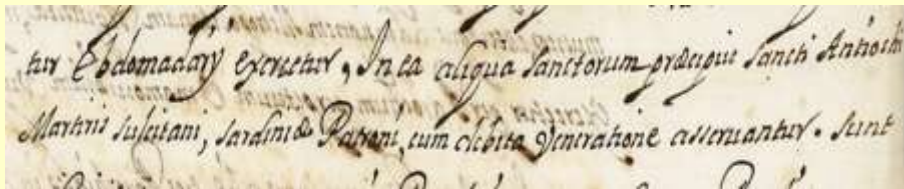 tur Ebdomadarij exercetur, In ea aliqua Sanctorum præcipue Sancti Antiochi
Martiris Sulcitani, Sardiniæ Patroni, cum debita Veneratione asseruantur. Sunt